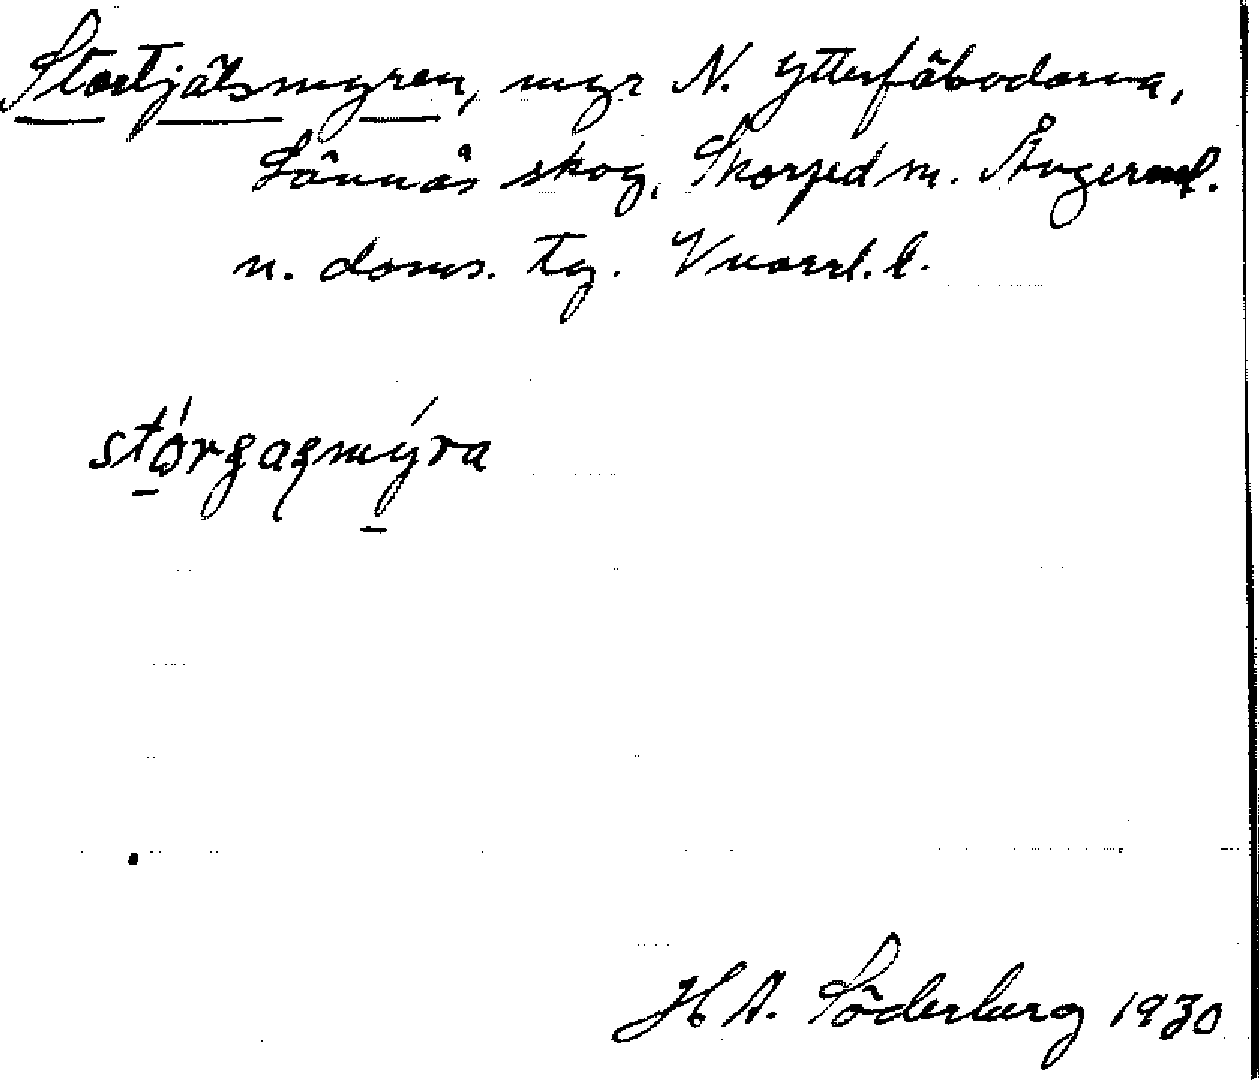 Stortjälsmyren, myr N. Ytterfäbodarna,
Lännäs skog, Skorped sn. Ångerml.
n. doms. Tg. l.
stórgagmýra
H A. Söderberg 1930